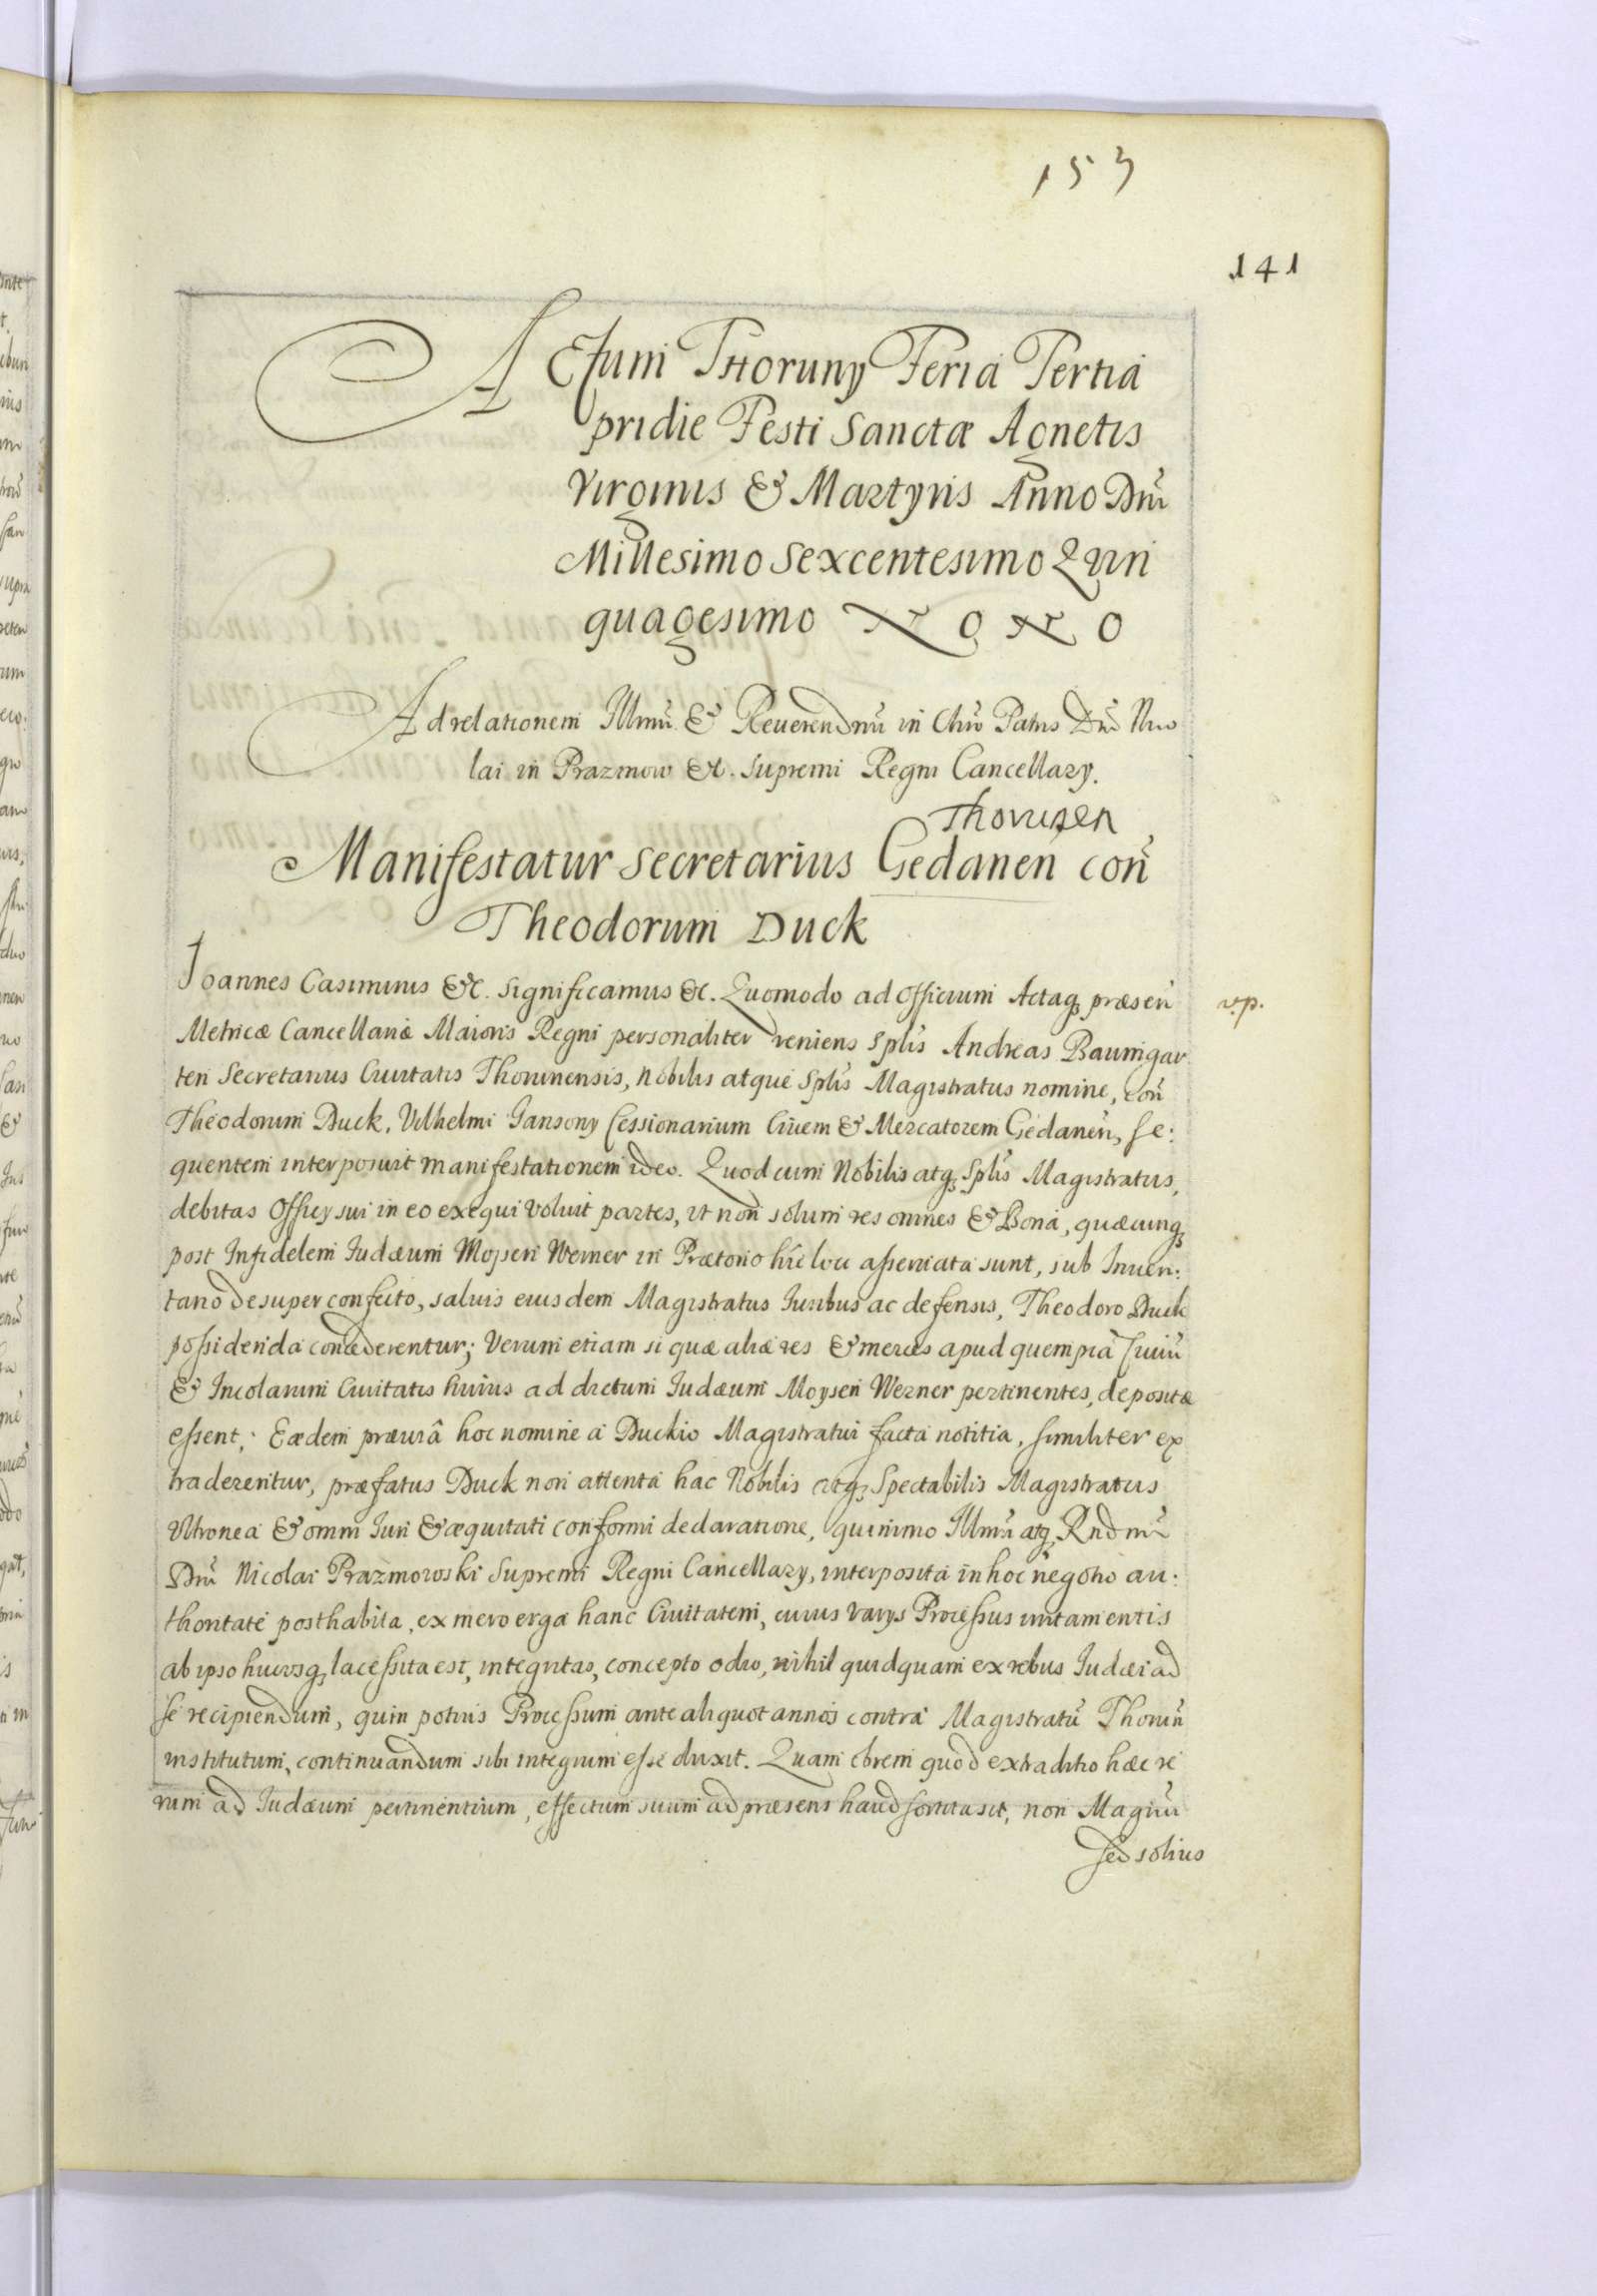 153
141
ACtum Thoruny Feria Tertia
pridie Festi Sanctæ Agnetis
Virginis & Martyris Anno Dnī
Millesimo Sexcentesimo Quin
quagesimo Nono
Ad relationem Illmī & Reuerendmī in Chrō Patris Dnī Nico
lai in Prazmow &c. Supremi Regni Cancellary.
Thorunen
Manifestatur Secretarius Gedanen con̄
Theodorum Duck
Joannes Casimirus &c. Significamus &c. Quomodo ad Officium Actaq; præsen̄
v.p.
Metricæ Cancellariæ Maioris Regni personaliter veniens Splīs Andreas Baumgar
ten Secretarius Ciuitatis Thorunensis, Nobilis atque Splīs Magistratus nomine, con̄
Theodorum Duck, Vilhelmi Gansony Cessionarium Ciuem & Mercatorem Gedanen̄, se:
quentem interposuit manifestationem ideo. Quod cum Nobilis atq; Splīs Magistratus,
debitas Officy sui in eo exequi voluit partes, vt non solum res omnes & Bona, quæcunq;
post Infidelem Iudæum Moysen Werner in Prætorio hīc loci asseruata sunt, sub Inuen:
tario desuper confecto, saluis eiusdem Magistratus Iuribus ac defensis, Theodoro Duck
possidenda concederentur; Verum etiam si quæ aliæ res & merces apud quempiā Ciuiū
& Incolarum Ciuitatis huius ad dictum Iudæum Moysen Werner pertinentes, depositæ
essent; Eædem præuiâ hoc nomine a Duckio Magistratui facta notitia, similiter ex
traderentur, præfatus Duck non attenta hac Nobilis atq; Spectabilis Magistratus
Vltronea & omni Iuri & æquitati conformi declaratione, quinimo Illmī atq; Rndmī
Dnī Nicolai Prazmowski Supremi Regni Cancellary, interposita in hoc negotio au:
thoritate posthabita, ex mero erga hanc Ciuitatem, cuius varys Processus irritamentis
ab ipso hucusq; lacessita est, integritas, concepto odio, nihil quidquam ex rebus Iudæi ad
se recipiendum, quin potius Processum ante aliquot annos contra Magistratū Thorun̄
institutum, continuandum sibi integrum esse duxit. Quam obrem quod extraditio hæc re
rum ad Iudæum pertinentium, effectum suum ad præsens haud sortita sit, non Magrūs
sed solius